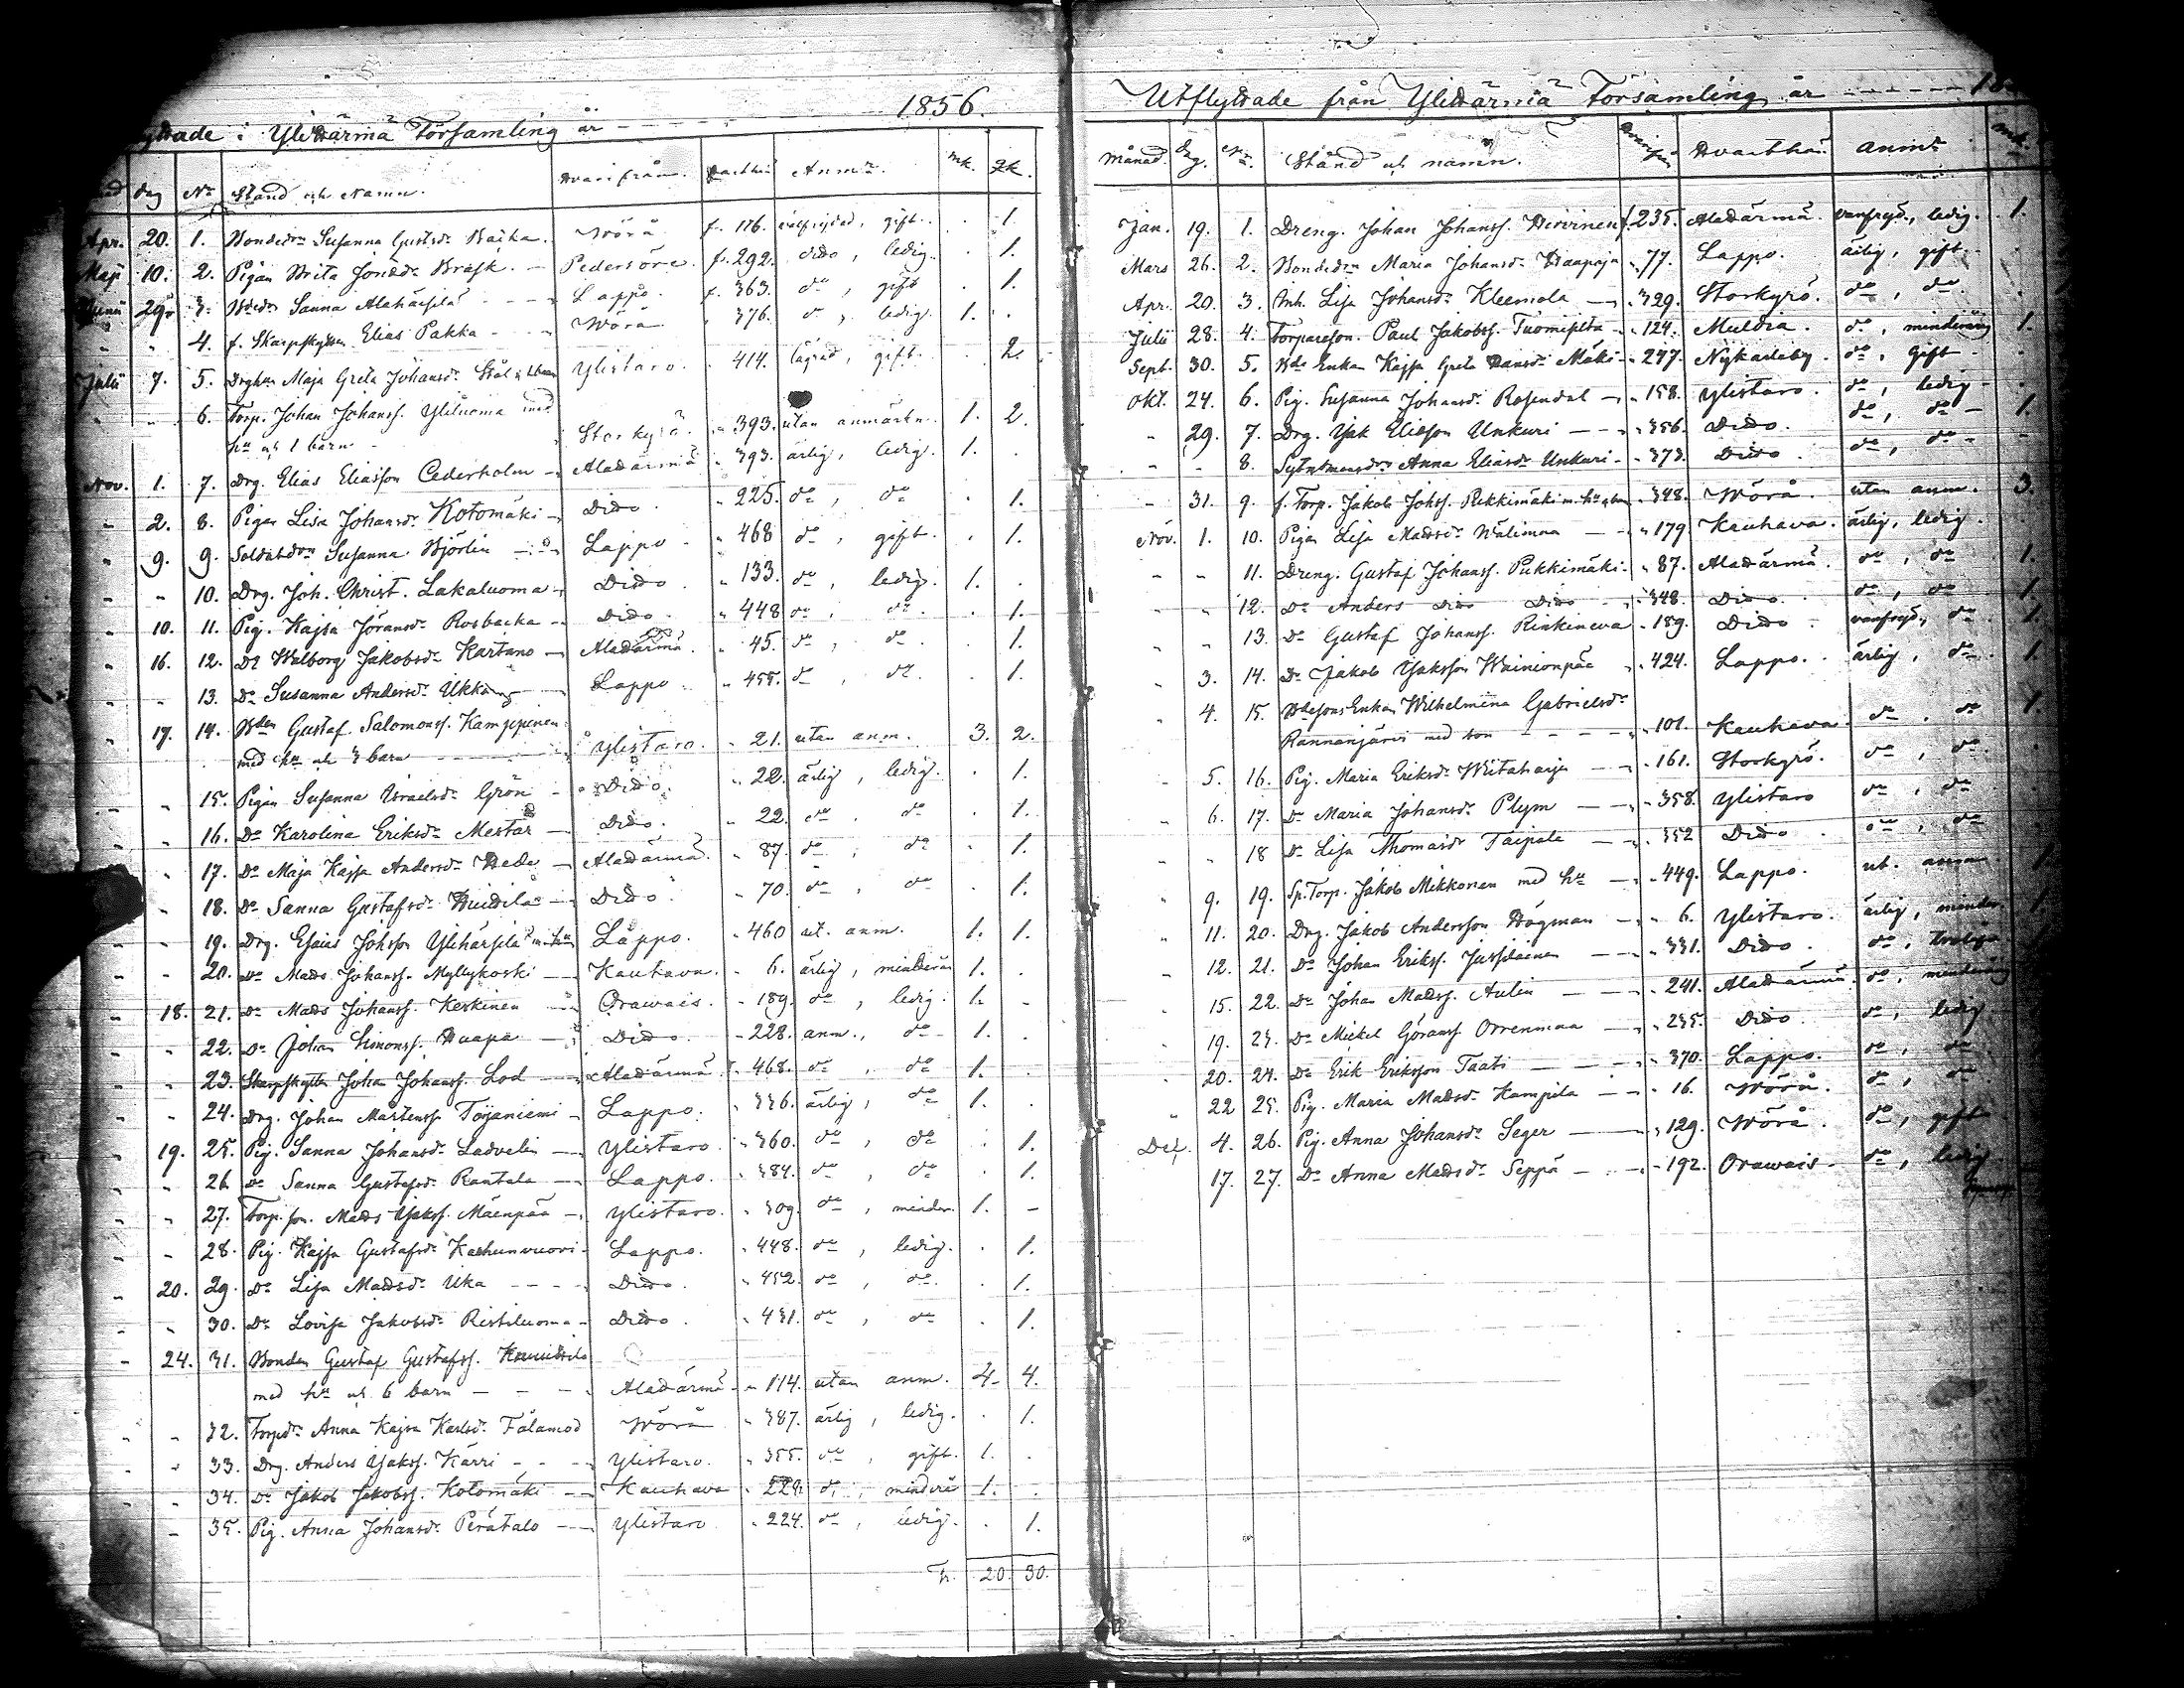 1856.
i Ylihärmä Församling år
dag No Stånd och Namn. Hvarifrån. Anmn. mk. qk.
Apr. 20. 1. Bondedr. Susanna Gustsdr Backa. Wörå f. 116. välfrejdad, gift. . 1.
Maji 10. 2. Pigan Brita Jonsdr Brask. Pedersöre. f. 292. dido, ledig. . 1.
29. 3. Sanna Alahärsilä Lappo. f. 363. do, gift . 1.
4. f. Skarpskytten Elias Pakka Wörå 376. do, ledig. 1. .
Julii 7. 5. Maja Greta Johansdr Ylistaro. 414. lagvad, gift. . 2.
6. Torp. Johan Johanss. Yliluoma med
hu och 1 barn Storkyrö. 393. utan anmärkn. 1. 2.
Nov. 1. 7. Drg. Elias Eliasson Cederholm Alahärmä 393. ärlig, ledig. 1. .
2. 8. Pigan Lisa Johansdr Kotomäki Dido. 225. do, do . 1.
9. 9. Soldatdr Susanna Björlin Lappo 468 do, gift. . 1.
10. Drg. Joh. Christ. Lakaluoma Dido. 133. do, ledig. 1. .
10. 11. Pig. Kajsa Jöransdr Rosbacka Dido. 448 do, do . 1.
16. 12. Do Walborg Jakobsdr Kartano Alahärmä. 45. do, do . 1.
13. Do Susanna Andersdr Ukko Lappo. 458. do, do . 1.
17. 14. Bden Gustaf Salomonss. Kamppinen
med hu och 3 barn Ylistaro. 21. utan anm. 3. 2.
15. Pigan Susanna Israelsdr Grön Dido. 22. ärlig, ledig. . 1.
16. Do Karolina Eriksdr Mestar Dido. 22. do, do . 1.
17. Do Maja Kajsa Andersdr Hede Alahärmä. 87. do, do . 1.
18. Do Sanna Gustafsdr Huidila Dido. 70. do, do . 1.
19. Drg. Esaias Johsson Ylihärsilä m. hu Lappo. 460 ut. anm. 1. 1.
20. Do Mads Johanss. Myllykoski Kauhava. 6. ärlig, minderår 1. .
18. 21. Do Mads Johanss. Keskinen Orawais. 189. do, ledig. 1. .
22. Do Johan Simonss. Haapa Dido. 228. anm., do 1. .
23. Skarpskytten Johan Johanss. Lod Alahärmä 468. do, do 1. .
24. Drg. Johan Mårtenss. Töyäniemi Lappo. 336. ärlig, do 1. .
19. 25. Pig. Sanna Johansdr Ladvelin Ylistaro. 360. do, do . 1.
26. Do Sanna Gustafsdr Rantala Lappo. 384. do, do . 1.
27. Torp. son. Mads Isakss. Mäenpää Ylistaro. 309. do, minder. 1. -
28. Pig. Kajsa Gustafsdr Karhunvuori Lappo. 448. do, ledig. . 1.
20. 29. Do Lisa Madsdr Uka Dido. 452. do, do. . 1.
30. Do Lovisa Jakobsdr Ristiluoma Dido. 431. do, do . 1.
24. 31. Bonden Gustaf Gustafss.
med hu och 6 barn Alahärmä 114. utan anm. 4. 4.
32. Torpdr Anna Kajsa Karlsdr Fålamod Wörå 387. ärlig, ledig. . 1.
33. Drg. Anders Isakss. Karri Ylistaro. 355. do, gift. 1. .
34. Do Jakob Jakobss. Kotomäki Kauhava do, minderår 1. .
35. Pig. Anna Johansdr Perätalo Ylistaro 224. do, ledig. . 1.
20. 30.
Utflyttade från Ylihärmä Församling år
Månad. Dag. No. Stånd och namn. Hvarthän. anmn
Jan. 19. 1. Dreng. Johan Johanss. Hirvinen f. 235. Alahärmä. vanfrejd., ledig. 1.
Mars 26. 2. Bondedr Maria Johansdr Haapoja 77. Lappo. ärlig, gift.
Apr. 20. 3. Inh. Lisa Johansdr Kleemola 329. Storkyrö. do, do.
Julii 28. 4. Torpareson. Paul Jakobss. Tuomisilta 124. Muldia. do, minderårig 1.
Sept. 30. 5. Bde Enkan Kajsa Greta Hansdr Mäki 247. Nykarleby. do, gift
Okt. 24. 6. Pig. Susanna Johansdr Rosendal 158. Ylistaro. do, ledig
29. 7. Drg. Isak Eliesson Unkuri 356. Dido. do, do 1.
8. Anna Eliasdr Unkuri 373. Dido. do, do
31. 9. f. Torp. Jakob Johss. Pukkimäki m. hu 348. Wörå. utan anm. 3.
Nov. 1. 10. Pigan Lisa Madsdr Wälimaa 179 Kauhava. ärlig, ledig.
11. Dreng. Gustaf Johanss. Pukkimäki 87. Alahärmä. do, do 1.
12. Do Anders Dido Dido 348. Dido. do, do 1.
13. Do Gustaf Johanss. Rinkineva 189. Dido. vanfrejd., do 1.
3. 14. Do Jakob Isaksson Wainionpää 424. Lappo. ärlig, do 1.
4. 15. Enkan Wilhelmina Gabrielsdr
Rannanjärvi med son 101. Kauhava do, do 1.
5. 16. Pig. Maria Eriksdr Wiitaharju 161. Storkyrö. do, do
6. 17. Do Maria Johansdr Plym 358. Ylistaro do, do
18 Do Lisa Thomasdr Taipale 352 Dido. do, do
9. 19. Sp. Torp. Jakob Mikkonen med hu 449. Lappo. ut. anm 1
11. 20. Drg. Jakob Andersson Högman 6. Ylistaro. ärlig, minder 1
12. 21. Do Johan Erikss. Jussilainen 331. Dido. do,
15. 22. Do Johan Madss. Aulin 241. Alahärmä. do, minderårig
19. 23. Do Mickel Göranss Orrenmaa 235. Dido. do, ledig
20. 24. Do Erik Eriksson Taati 370. Lappo. do, do
22 25. Pig. Maria Madsdr Kampila 16. Wörå. do, do
Dec. 4. 26. Pig. Anna Johansdr Seger 129. Wörå. do, gift
17. 27. Do Anna Madsdr Seppä 192. Orawais do, ledig